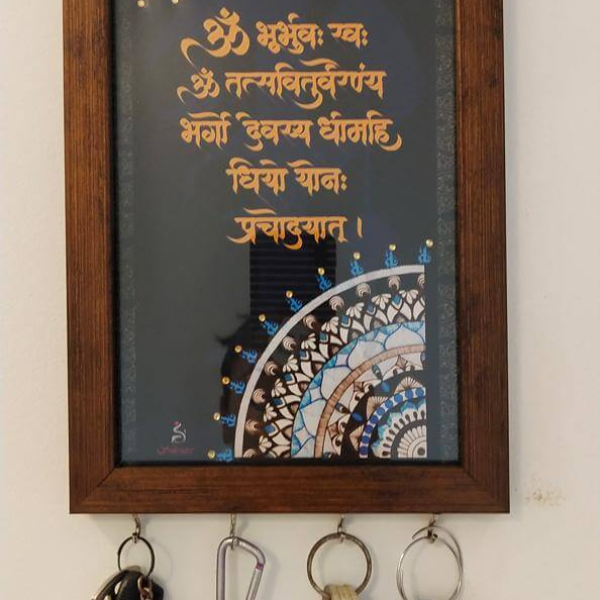 ॐ भूर्भुवः स्वः
ॐ तत्सवितुर्वरेण्यं
भर्गो देवस्य धीमहि
धियो योनः
प्रचोदयात् ।